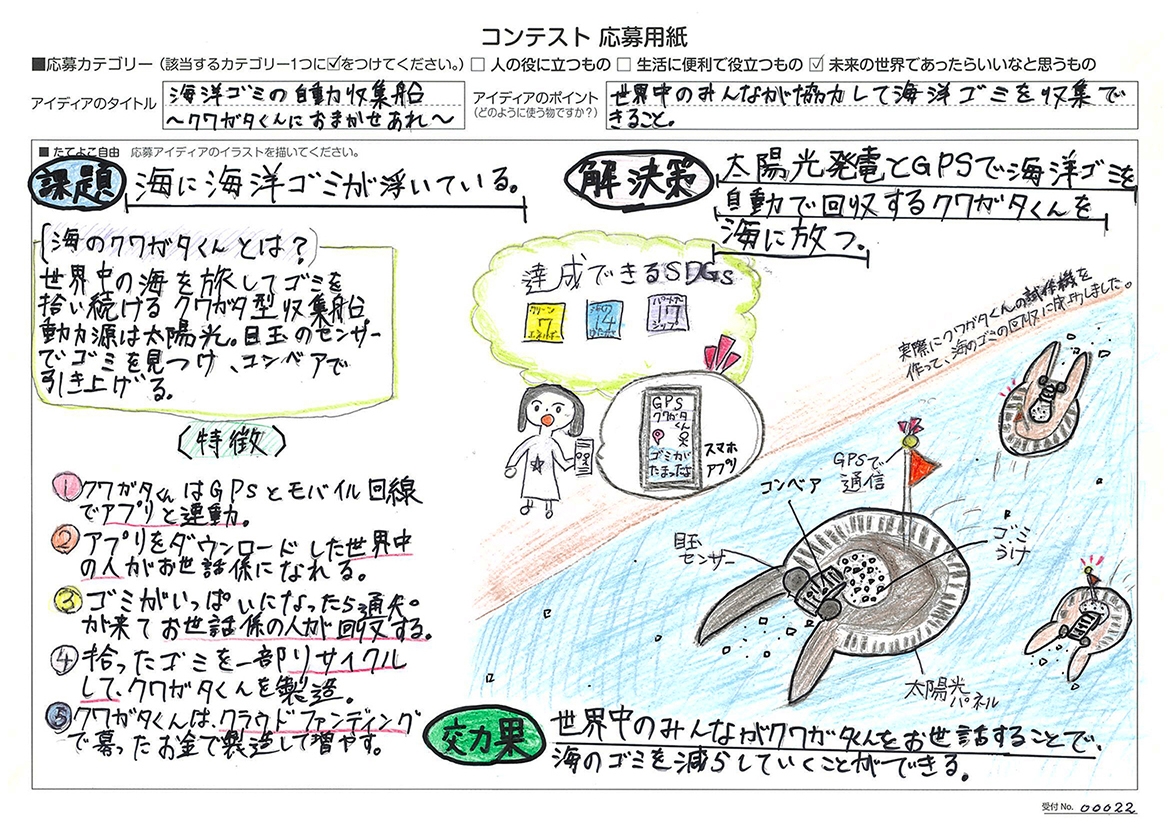 コンテスト 応募用紙
■応募カテゴリー（該当するカテゴリー1つに☑をつけてください。）□ 人の役に立つもの □ 生活に便利で役立つもの ☑ 未来の世界であったらいいなと思うもの
アイディアのタイトル
海洋ゴミの自動収集船
〜クワガタくんにおまかせあれ〜
アイディアのポイント
（どのように使う物ですか？）
世界中のみんなが協力して海洋ゴミを収集で
きること。
■ たてよこ自由 応募アイディアのイラストを描いてください。
課題
海に海洋ゴミが浮いている。
解決策
太陽光発電とGPSで海洋ゴミを
自動で回収するクワガタくんを
海に放つ。
海のクワガタくんとは？
世界中の海を旅してゴミを
拾い続けるクワガタ型収集船。
動力源は太陽光。目玉のセンサー
でゴミを見つけ、コンベアで
引き上げる。
達成できるSDGs
クリーン
7
エネルギー
海の
14
パートナー
17
シップ
GPS
クワガタ
くん
ゴミが
たまったよ
スマホ
アプリ
実際にクワガタくんの試作機を
作って、海のゴミの回収に成功しました。
特徴
1 クワガタくんはGPSとモバイル回線
でアプリと連動。
2 アプリをダウンロードした世界中
の人がお世話係になれる。
3 ゴミがいっぱいになったら通知
が来てお世話係の人が回収する。
4 拾ったゴミを一部リサイクル
して、クワガタくんを製造。
5 クワガタくんは、クラウドファンディング
で募ったお金で製造して増やす。
GPSで
通信
コンベア
目玉
センサー
ゴミ
うけ
太陽光
パネル
効果
世界中のみんながクワガタくんをお世話することで、
海のゴミを減らしていくことができる。
受付 No. 00022